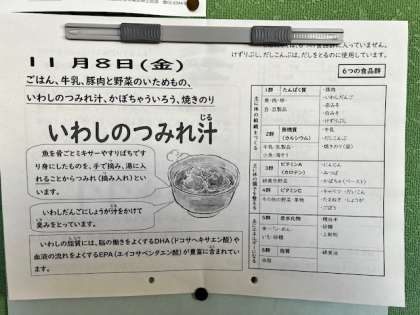 けずりぶし、だしこんぶは、だしをとるのに使用しています。
11月8日(金)
ごはん、牛乳、豚肉と野菜のいためもの、
いわしのつみれ汁、かぼちゃういろう、焼きのり
いわしのつみれ汁
じる
魚を骨ごとミキサーやすりばちです
り身にしたものを、手で摘み、湯に入
れることからつみれ(摘み入れ)とい
います。
いわしだんごにしょうが汁をかけて
臭みをとっています。
いわしの脂質には、脳の働きをよくするDHA(ドコサヘキサエン酸)や
血液の流れをよくするEPA(エイコサペンタエン酸)が豊富に含まれてい
ます。
6つの食品群
1群 たんぱく質
魚・肉・卵・
豆・豆製品
・豚肉
・いわしだんご
・赤みそ
・白みそ
2群 無機質
(カルシウム)
牛乳・乳製品・
小魚・海そう
・牛乳
・だしこんぶ
・焼きのり
3群 ビタミンA
(カロテン)
緑黄色野菜
・にんじん
4群 ビタミンC
その他の野菜・果物
・キャベツ
・たまねぎ ・しょうが
・ごぼう
5群 炭水化物
いも・砂糖
・精白米
・砂糖
・上新粉
6群 脂質
油脂